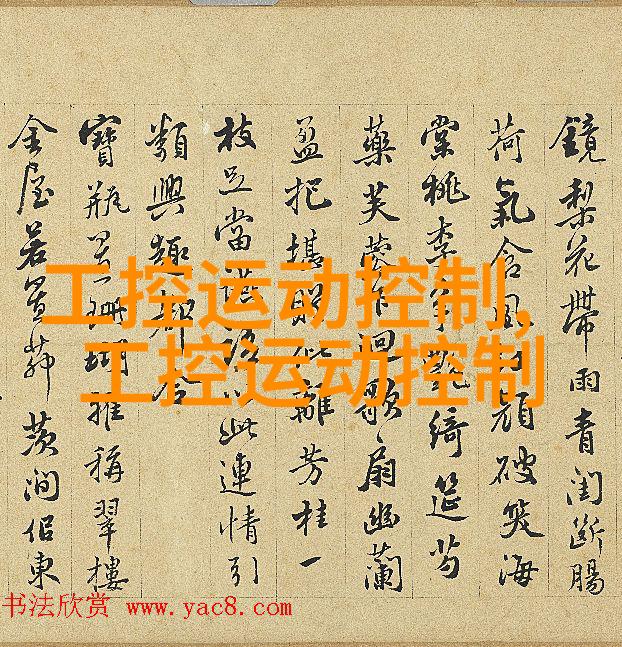 鏡梨花帶雨青閨斷腸
荷氣含風顔破笑海
棠桃李爭艷綺筵芍
藥芙蓉迴歌扇幽蘭
盈把堪似離芳桂一
枝足當此連情引
類興趣都合
寶瓶珊瑚推稱翠樓
金屋若澗侶東
工控运动控制,
工控运动控制
书法欣赏 www.yac8.com